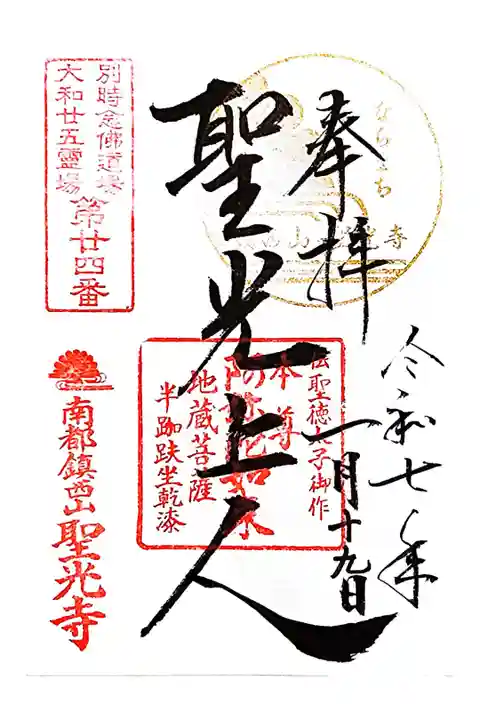 奉拝
ならまち
山
寺
令和七年
一月十九日
聖光上人
伝聖徳太子御作
本尊
阿弥陀如来
地蔵菩薩
半跏趺坐乾漆
別時念佛道場
大和廿五靈場
第廿四番
南都鎮西山
聖光寺